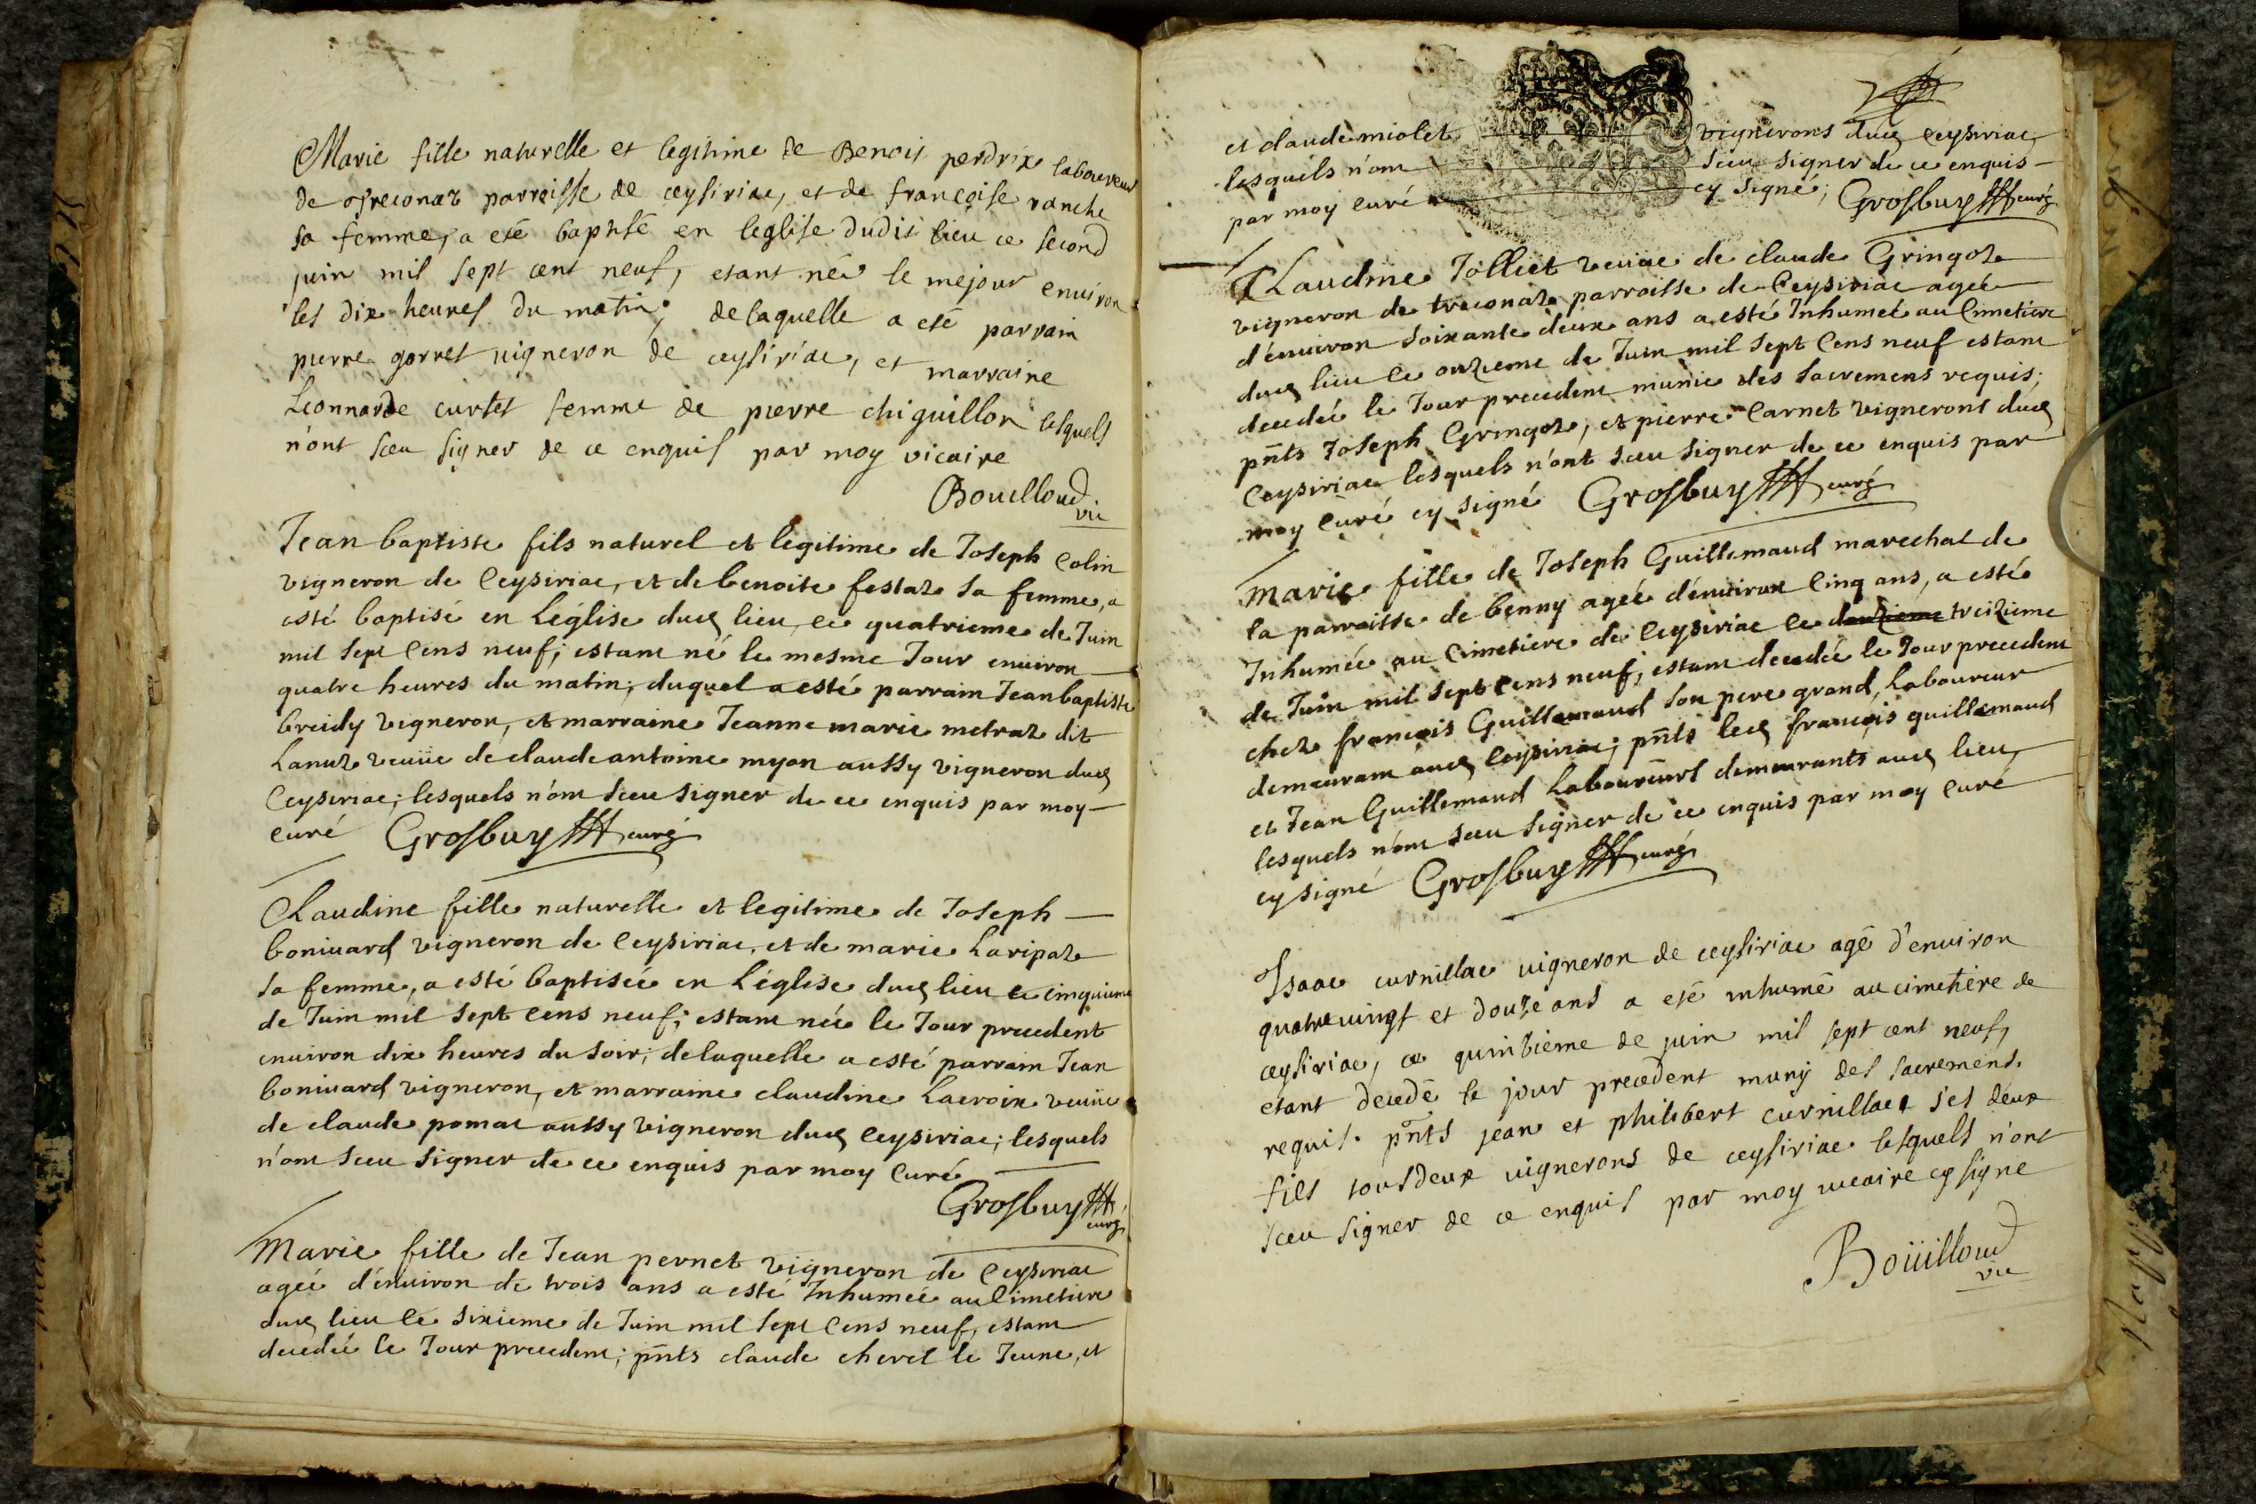 Marie fille naturelle et legitime de Benoit perdrix laboureur
de treconaz parroisse de ceysiriac, et de françoise ranche
sa femme, a eté baptisé en leglise dudit lieu ce second
juin mil sept cent neuf, etant née le mejour environ
les dix heures du matin, de laquelle a eté parrain
pierre gorret vigneron de ceysiriac, et marraine
Leonnarde curtet femme de pierre chiguillon lesquels
n'ont sceu signer de ce enquis par moy vicaire
Bouilloud
vic
Jean baptiste fils naturel et legitime de Joseph Colin
vigneron de Ceysiriac, et de benoite festaz sa femme, a
esté baptisé en L'église dud lieu ce quatrieme de Juin
mil sept Cens neuf; estant né le mesme Jour environ
quatre heures du matin; duquel a esté parrain Jean baptiste
breidy vigneron, et marraine Jeanne marie metraz dit
Lanuz veuüe de claude antoine myon aussy vigneron dud
Ceysiriac; lesquels n'ont sceu signer de ce enquis par moy
curé Grosbuy curé
Claudine fille naturelle et legitime de Joseph
bonivard vigneron de Ceysiriac, et de marie Laripaz
sa femme, a esté baptisée en L'église dud lieu ce cinquieme
de Juin mil sept Cens neuf; estant née le Jour precedent
environ dix heures du soir; de laquelle a esté parrain Jean
bonivard vigneron, et marraine claudine Lacroix veuüe
de claude pomat aussy vigneron dud Ceysiriac; lesquels
n'ont sceu signer de ce enquis par moy Curé
Grosbuy
curé
Marie fille de Jean pernet vigneron de Ceysiriac
agée d'environ de trois ans a esté Inhumée au Cimetiere
dud lieu le sixieme de Juin mil sept Cens neuf, estant
decedée le Jour precedent; pñts claude cheret le Jeune, et
et claude miolet vignerons dud Ceysiriac
lesquels n'ont sceu signer de ce enquis
par moy curé cy signé; Grosbuy curé
Claudine Jolliet veuue de claude Gringoz
vigneron de treconaz parroisse de Ceysiriac agée
d'environ soixante deux ans a esté Inhumée au Cimetiere
dud lieu le onzieme de Juin mil sept Cens neuf estant
decedée le Jour precedent munie des sacremens requis;
pñts Joseph Gringoz, et pierre Carnet vignerons dud
Ceysiriac lesquels n'ont sceu signer de ce enquis par
moy Curé cy signé Grosbuy curé
Marie fille de Joseph Guillemaud marechal de
la parroisse de benny agée d'environ Cinq ans, a esté
Inhumée au Cimetiere de Ceysiriac ce douzieme treizieme
de Juin mil sept Cens neuf; estant decedée le Jour precedent
chez francois Guillemaud son pere grand, Laboureur
demeurant aud Ceysiriac; pñts led françois guillemaud
et Jean Guillemaud Laboureurs demeurants aud lieu,
lesquels n'ont sceu signer de ce enquis par moy Curé
cy signé Grosbuy curé
Isaac curnillac vigneron de ceysiriac agé d'environ
quatrevingt et douze ans a eté inhumé au cimetiere de
ceysiriac, ce quinzieme de juin mil sept cent neuf,
etant decedé le jour precedent muny des sacremens
requis. pñts jean et philibert curnillac ses deux
fils tousdeux vignerons de ceysiriac lesquels n'ont
sceu signer de ce enquis par moy vicaire cy signe
Boüilloud
vic